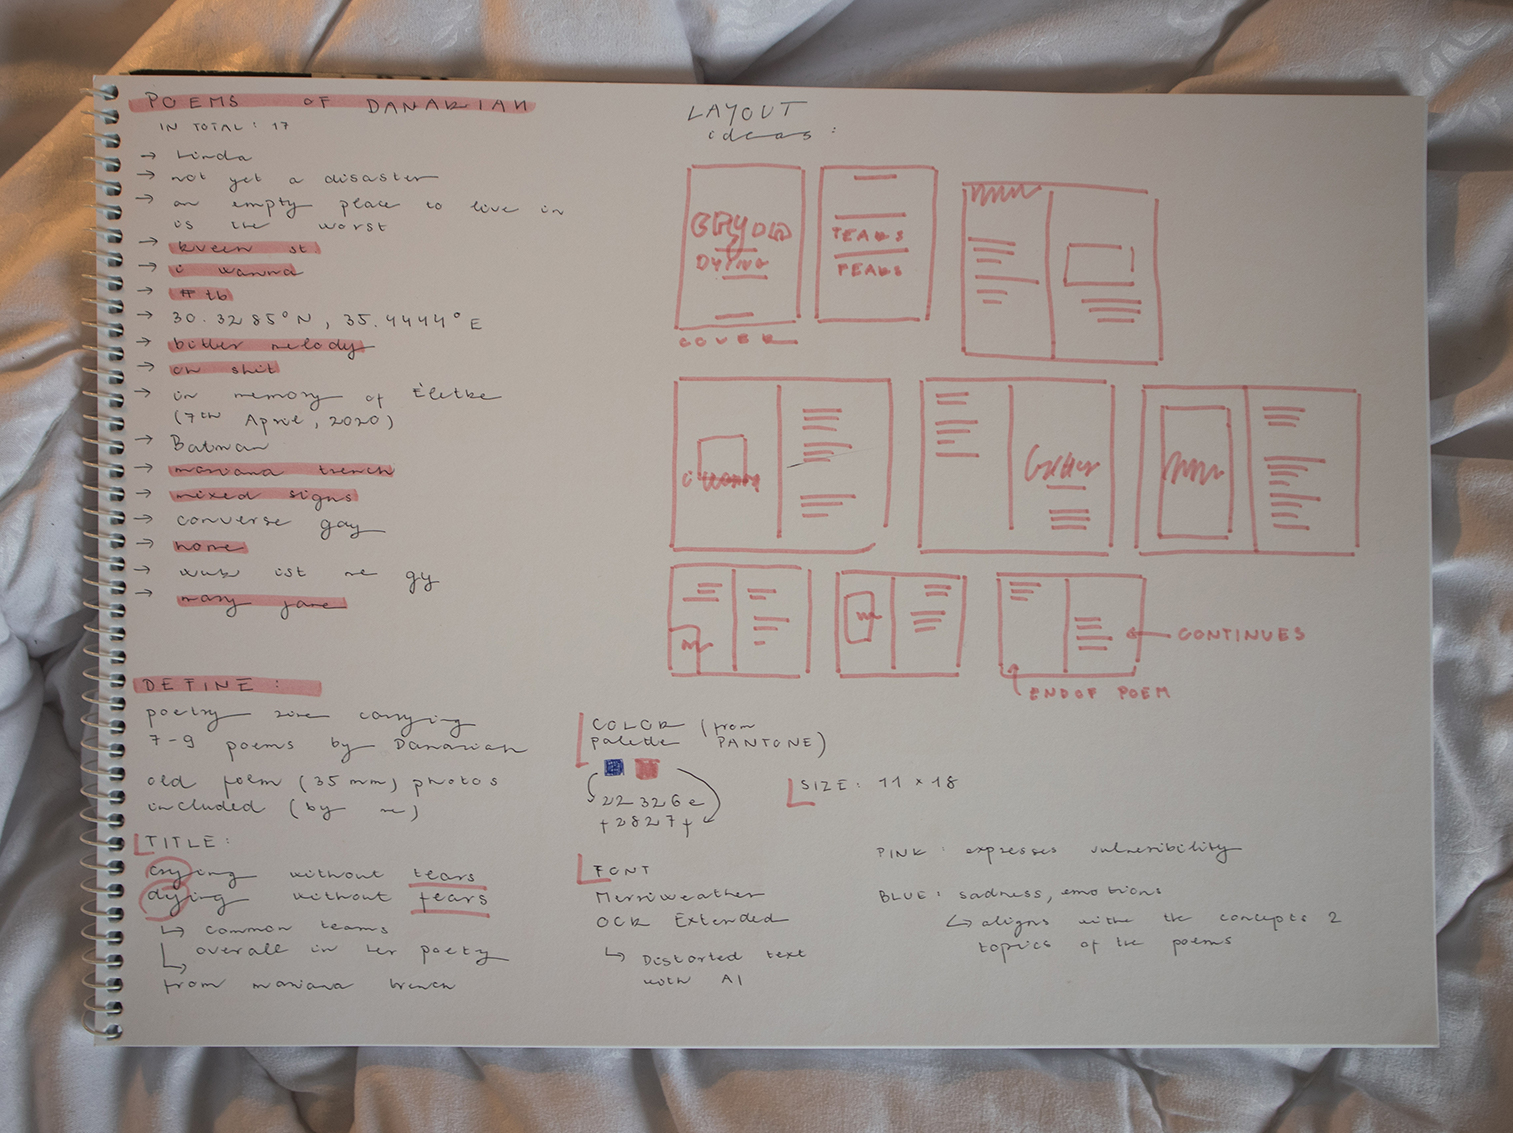 POEMS OF DANARIAH
IN TOTAL: 17
→ Linda
→ not yet a disaster
→ an empty place to live in
is the worst
→ kveen st
→ i wanna
→ # tb
→ 30.3285°N, 35.4444°E
→ bitter melody
→ oh shit
→ in memory of
(7th April, 2020)
→ Batman
→ mariana trench
→ mixed signs
→ converse gay
→ home
→ ist me gy
→ mary jane
DEFINE:
poetry zine carrying
7-9 poems by Danariah
old form (35 mm) photos
included (by me)
TITLE:
crying without tears
dying without fears
↳ common teams
overall in her poetry
↳
from mariana trench
LAYOUT
ideas:
CRYING
DYING
COVER
TEARS
FEARS
i wanna
bitter
CONTINUES
END OF POEM
COLOR (from
palette PANTONE)
22326c
+2827+
SIZE: 11 × 18
FONT
Merriweather
OCR Extended
↳ Distorted text
with AI
PINK: expresses vulneribility
BLUE: sadness, emotions
↳ aligns withe the concepts 2
topics of the poems